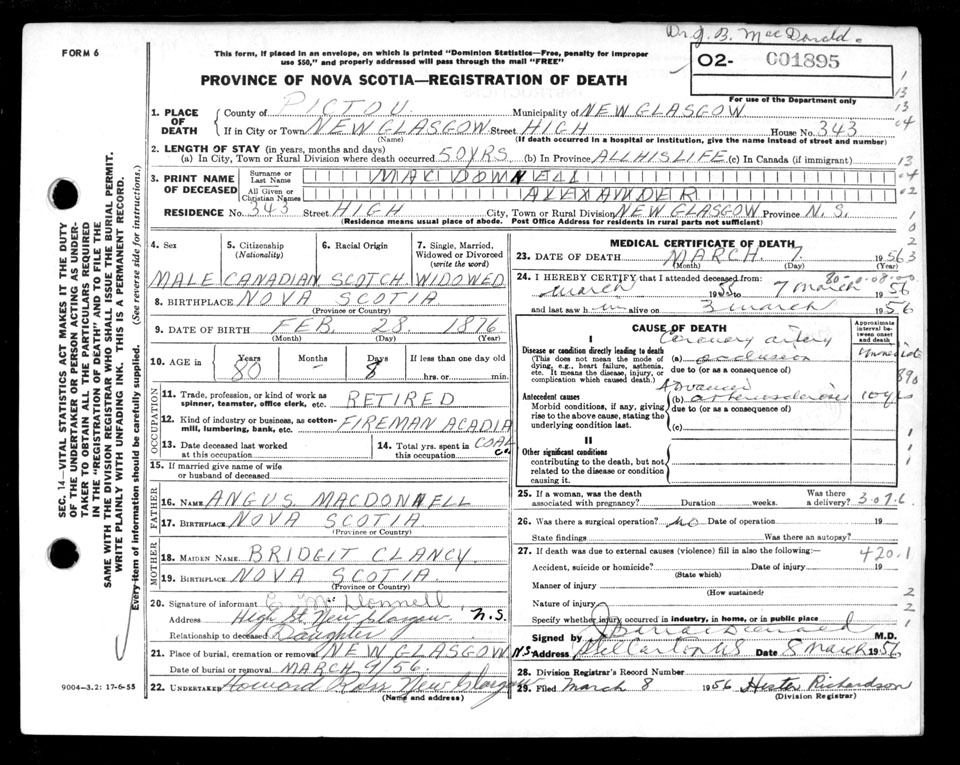 Dr. J. B. MacDonald.
FORM 6
This form, if placed in an envelope, on which is printed "Dominion Statistics—Free, penalty for improper
use $50," and properly addressed will pass through the mail "FREE"
O2- 001895
For use of the Department only
PROVINCE OF NOVA SCOTIA—REGISTRATION OF DEATH
1. PLACE OF DEATH
County of PICTOU Municipality of NEW GLASGOW
If in City or Town NEW GLASGOW Street HIGH House No. 343
(Name) (If death occurred in a hospital or institution, give the name instead of street and number)
2. LENGTH OF STAY (in years, months and days)
(a) In City, Town or Rural Division where death occurred 50 YRS. (b) In Province ALL HIS LIFE (c) In Canada (if immigrant)
3. PRINT NAME OF DECEASED
Surname or Last Name MACDONNELL
All Given or Christian Names ALEXANDER
RESIDENCE No. 343 Street HIGH City, Town or Rural Division NEW GLASGOW Province N. S.
(Residence means usual place of abode. Post Office Address for residents in rural parts not sufficient)
4. Sex
MALE
5. Citizenship (Nationality)
CANADIAN
6. Racial Origin
SCOTCH
7. Single, Married, Widowed or Divorced (write the word)
WIDOWED
8. BIRTHPLACE NOVA SCOTIA
(Province or Country)
9. DATE OF BIRTH FEB. 28. 1876
(Month) (Day) (Year)
10. AGE IN Years 80 Months - Days 8 If less than one day old
hrs. or min.
OCCUPATION
11. Trade, profession, or kind of work as spinner, teamster, office clerk, etc. RETIRED
12. Kind of industry or business, as cotton-mill, lumbering, bank, etc. FIREMAN ACADIA COAL Co.
13. Date deceased last worked at this occupation
14. Total yrs. spent in this occupation
15. If married give name of wife or husband of deceased
FATHER
16. NAME ANGUS MACDONNELL
17. BIRTHPLACE NOVA SCOTIA
(Province or Country)
MOTHER
18. MAIDEN NAME BRIDGIT CLANCY
19. BIRTHPLACE NOVA SCOTIA
(Province or Country)
20. Signature of informant McDonnell
Address High St. New Glasgow N.S.
Relationship to deceased Daughter
21. Place of burial, cremation or removal NEW GLASGOW NS
Date of burial or removal MARCH 9/56.
22. UNDERTAKER Howard Ross New Glasgow
(Name and address)
MEDICAL CERTIFICATE OF DEATH
23. DATE OF DEATH MARCH 7. 1956
(Month) (Day) (Year)
24. I HEREBY CERTIFY that I attended deceased from:
March 1955 to 7 March 1956
and last saw him alive on 3 March 1956
CAUSE OF DEATH
Approximate interval between onset and death
I
Disease or condition directly leading to death
(This does not mean the mode of dying, e.g., heart failure, asthenia, etc. It means the disease, injury, or complication which caused death.)
(a) Coronary artery occlusion Immediate
due to (or as a consequence of)
Antecedent causes
Morbid conditions, if any, giving rise to the above cause, stating the underlying condition last.
(b) Advanced arteriosclerosis 10 yrs
due to (or as a consequence of)
(c)
II
Other significant conditions
contributing to the death, but not related to the disease or condition causing it.
25. If a woman, was the death associated with pregnancy? Duration weeks. Was there a delivery? 3-07.6
26. Was there a surgical operation? no Date of operation 19
State findings Was there an autopsy?
27. If death was due to external causes (violence) fill in also the following:— 420.1
Accident, suicide or homicide? Date of injury 19
(State which)
Manner of injury
(How sustained)
Nature of injury
Specify whether injury occurred in industry, in home, or in public place
Signed by J B MacDonald M.D.
Address Stellarton NS Date 8 March 1956
28. Division Registrar's Record Number
29. Filed March 8 1956 Hester Richardson
(Division Registrar)
SEC. 14—VITAL STATISTICS ACT MAKES IT THE DUTY
OF THE UNDERTAKER OR PERSON ACTING AS UNDER-
TAKER TO OBTAIN ALL THE PARTICULARS REQUIRED
IN THE "REGISTRATION OF DEATH" AND TO FILE THE
SAME WITH THE DIVISION REGISTRAR WHO SHALL ISSUE THE BURIAL PERMIT.
WRITE PLAINLY WITH UNFADING INK. THIS IS A PERMANENT RECORD.
Every item of information should be carefully supplied. (See reverse side for instructions.)
9004—3.2: 17-6-55